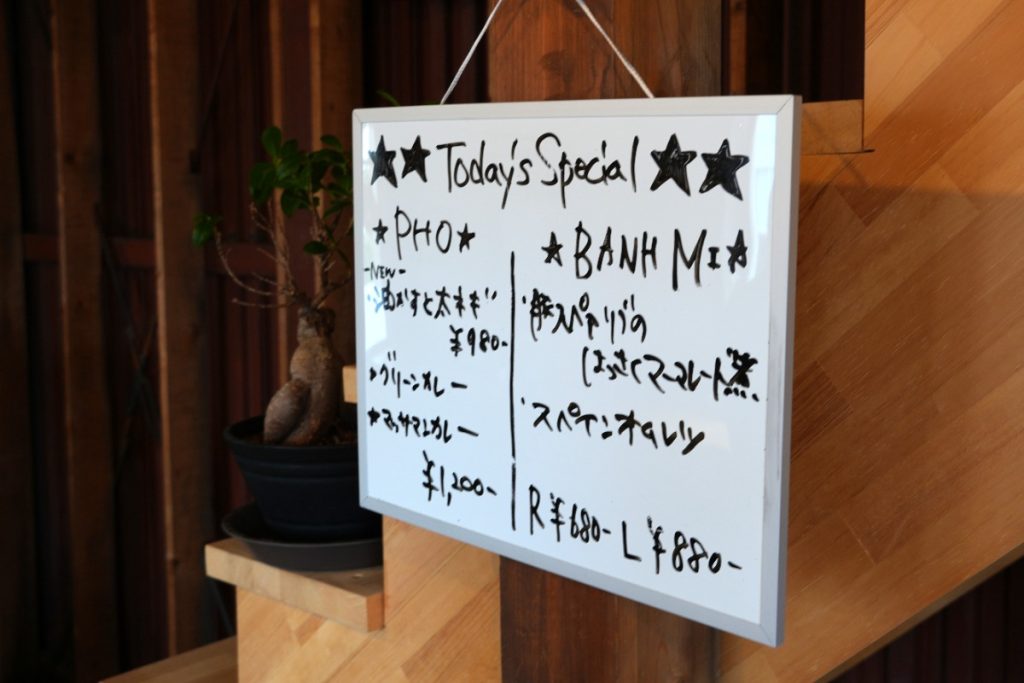 ★★Today's Special★★
★PHO★
-NEW-
・油かすと太ネギ
¥980-
★グリーンカレー
★マッサマンカレー
¥1,200-
★BANH MI★
・豚スペアリブの
はっさくマーマレード煮
・スペインオムレツ
R¥680- L¥880-